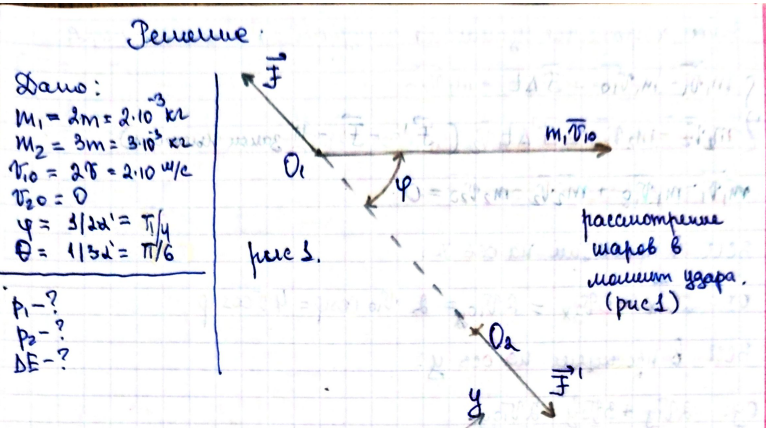 Решение.
Дано:
m₁ = 2m = 2·10⁻³ кг
m₂ = 3m = 3·10⁻³ кг
v₁₀ = 2v = 2·10 м/с
v₂₀ = 0
φ = 1/2α = π/4
θ = 1/3α = π/6
p₁ - ?
p₂ - ?
ΔE - ?
F⃗
m₁v⃗₁₀
O₁
φ
рис 1.
рассмотрение
шаров в
момент удара.
(рис 1)
O₂
F⃗'
y